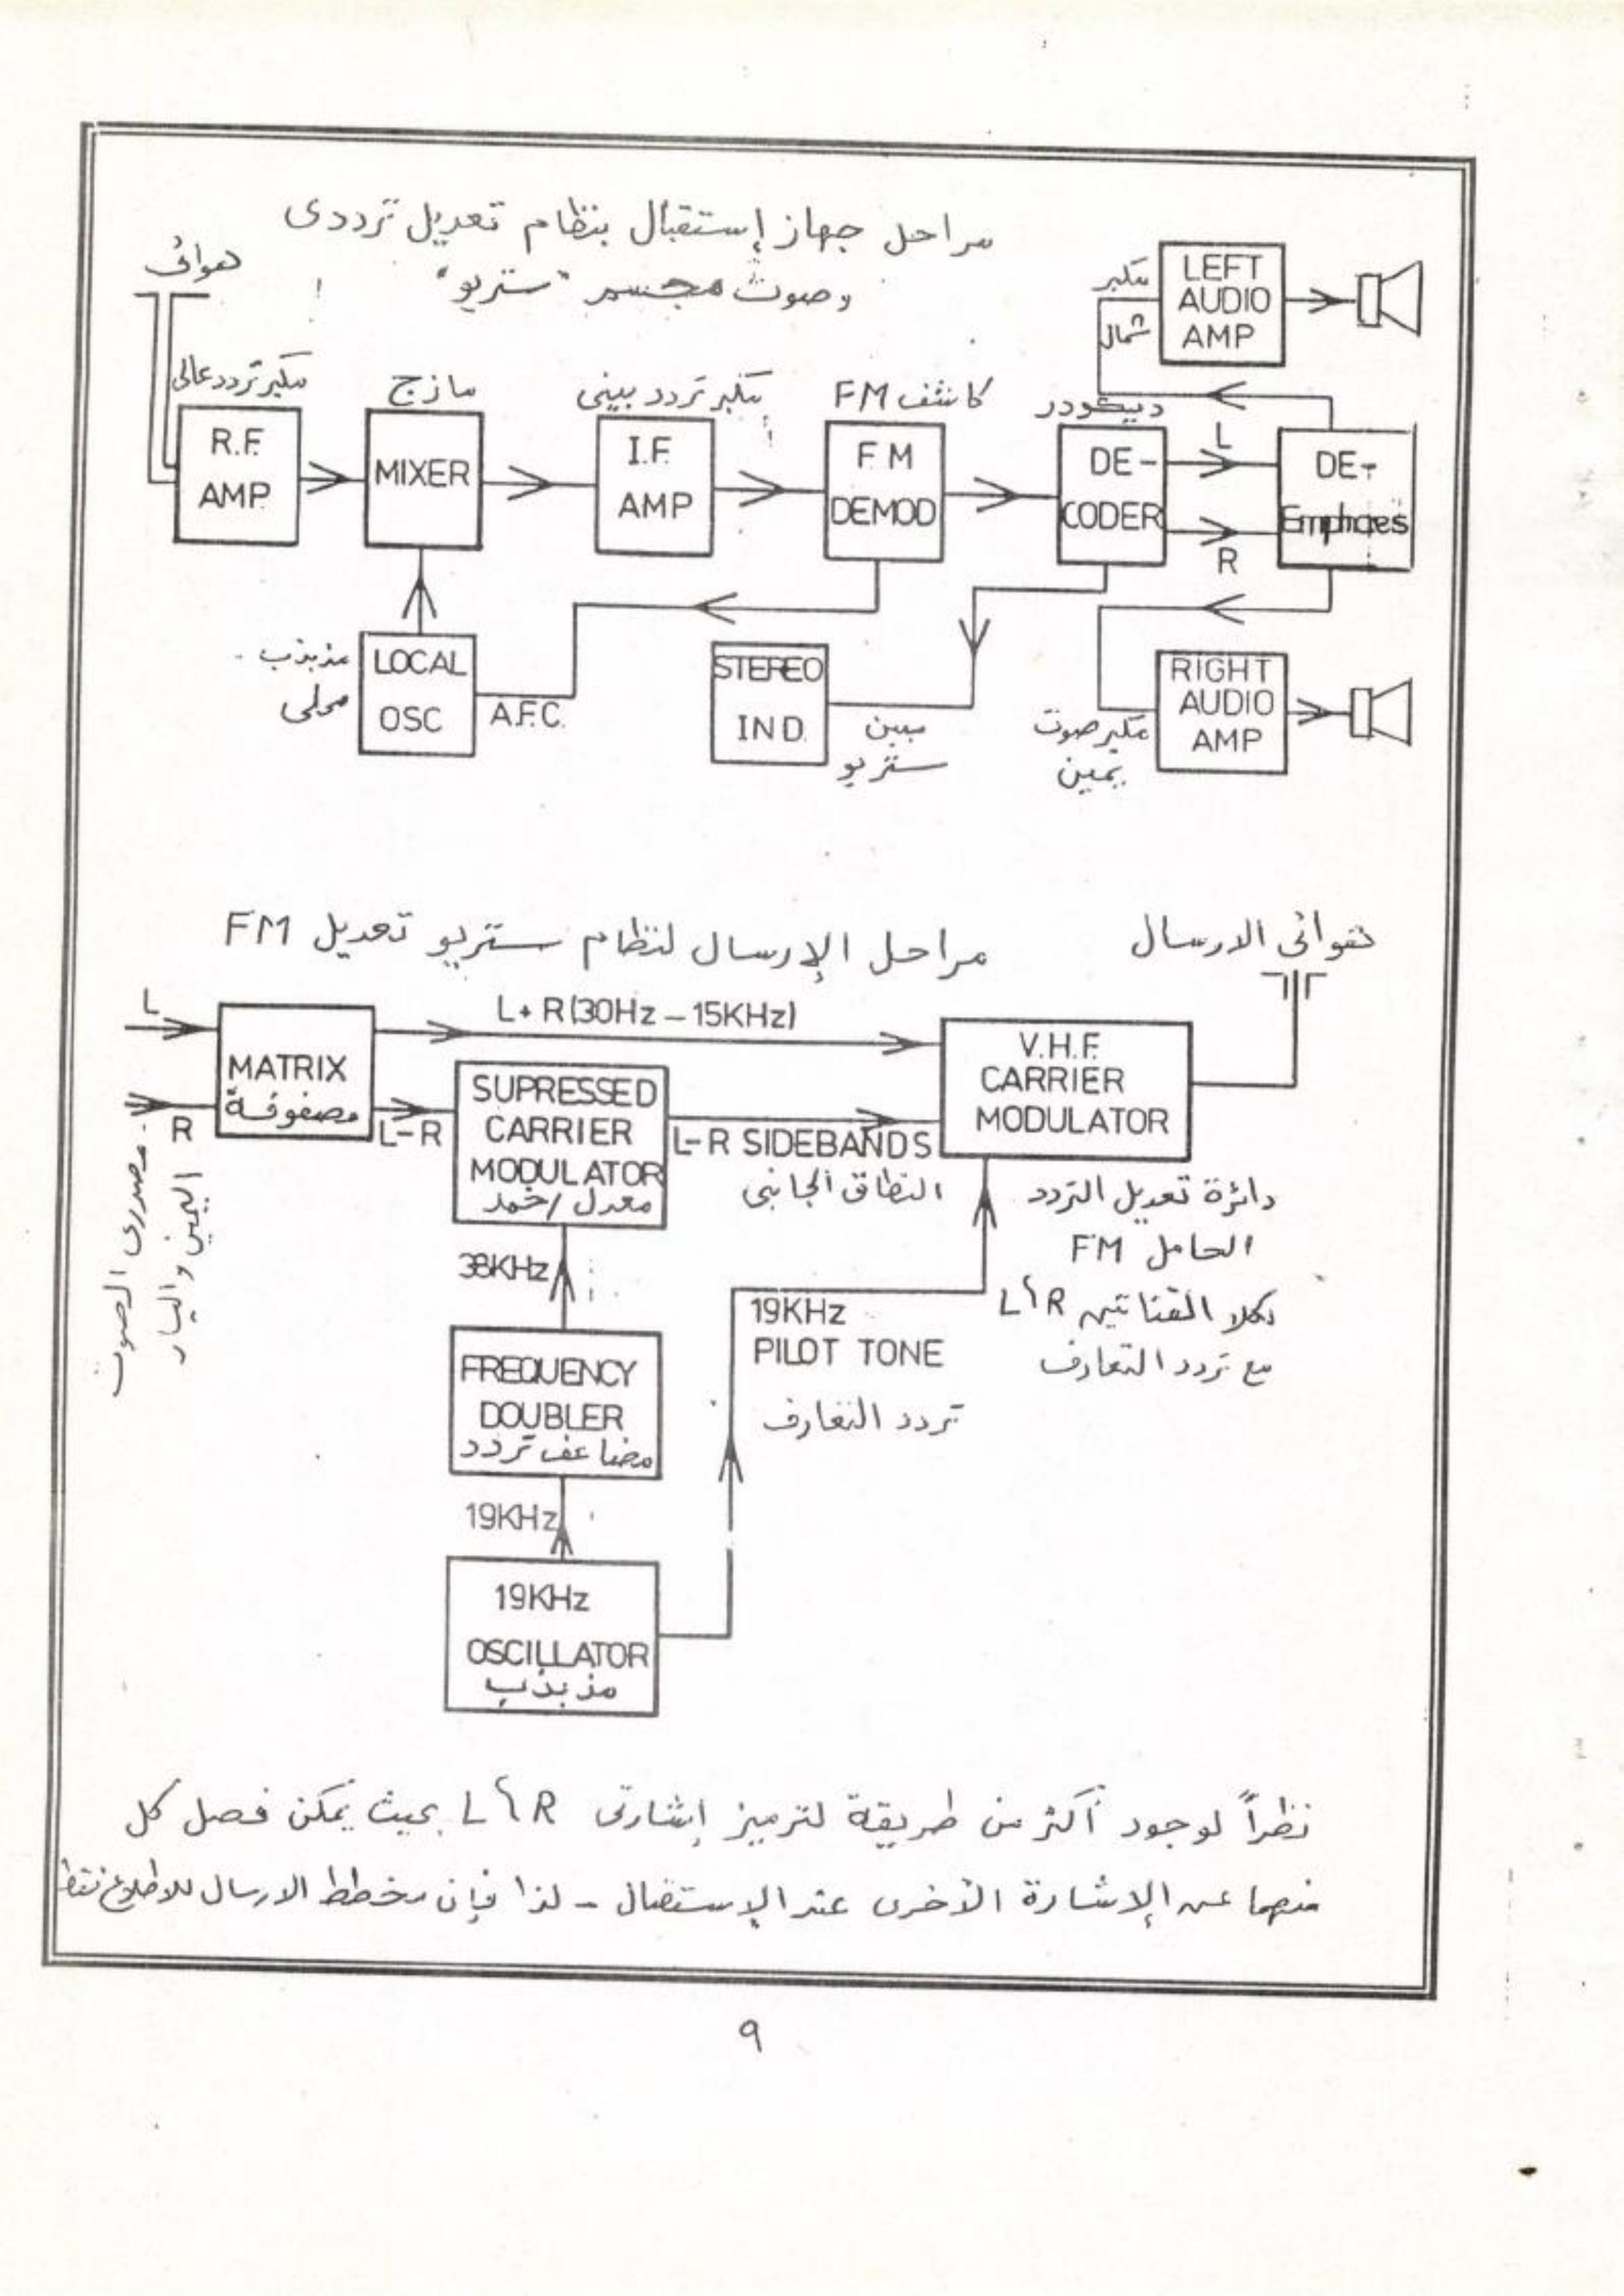 مراحل جهاز إستقبال بنظام تعديل ترددى
وصوت مجسم "ستريو"
هوائى
مكبر تردد عالى
R.F. AMP.
مازج
MIXER
مكبر تردد بينى
I.F. AMP
كاشف FM
FM DEMOD
ديكودر
DE-CODER
L
R
DE-Emphaes
مكبر شمال
LEFT AUDIO AMP
مذبذب محلى
LOCAL OSC
A.F.C.
STEREO IND.
مبين ستريو
مكبر صوت يمين
RIGHT AUDIO AMP
مراحل الإرسال لنظام ستريو تعديل FM
هوائى الارسال
L
R
مصدرى الصوت
اليمين واليسار
MATRIX
مصفوفة
L+R (30Hz – 15KHz)
L-R
SUPRESSED
CARRIER
MODULATOR
معدل / خمد
L-R SIDEBANDS
النطاق الجانبى
V.H.F.
CARRIER
MODULATOR
دائرة تعديل التردد
الحامل FM
بكلا القناتين L،R
مع تردد التعارف
38KHz
FREQUENCY
DOUBLER
مضاعف تردد
19KHz
PILOT TONE
تردد التعارف
19KHz
19KHz
OSCILLATOR
مذبذب
نظراً لوجود أكثر من طريقة لترميز إشارتى L،R بحيث يمكن فصل كل
منهما عن الإشارة الأخرى عند الإستقبال - لذا فإن مخطط الارسال للاطلاع فقط
٩